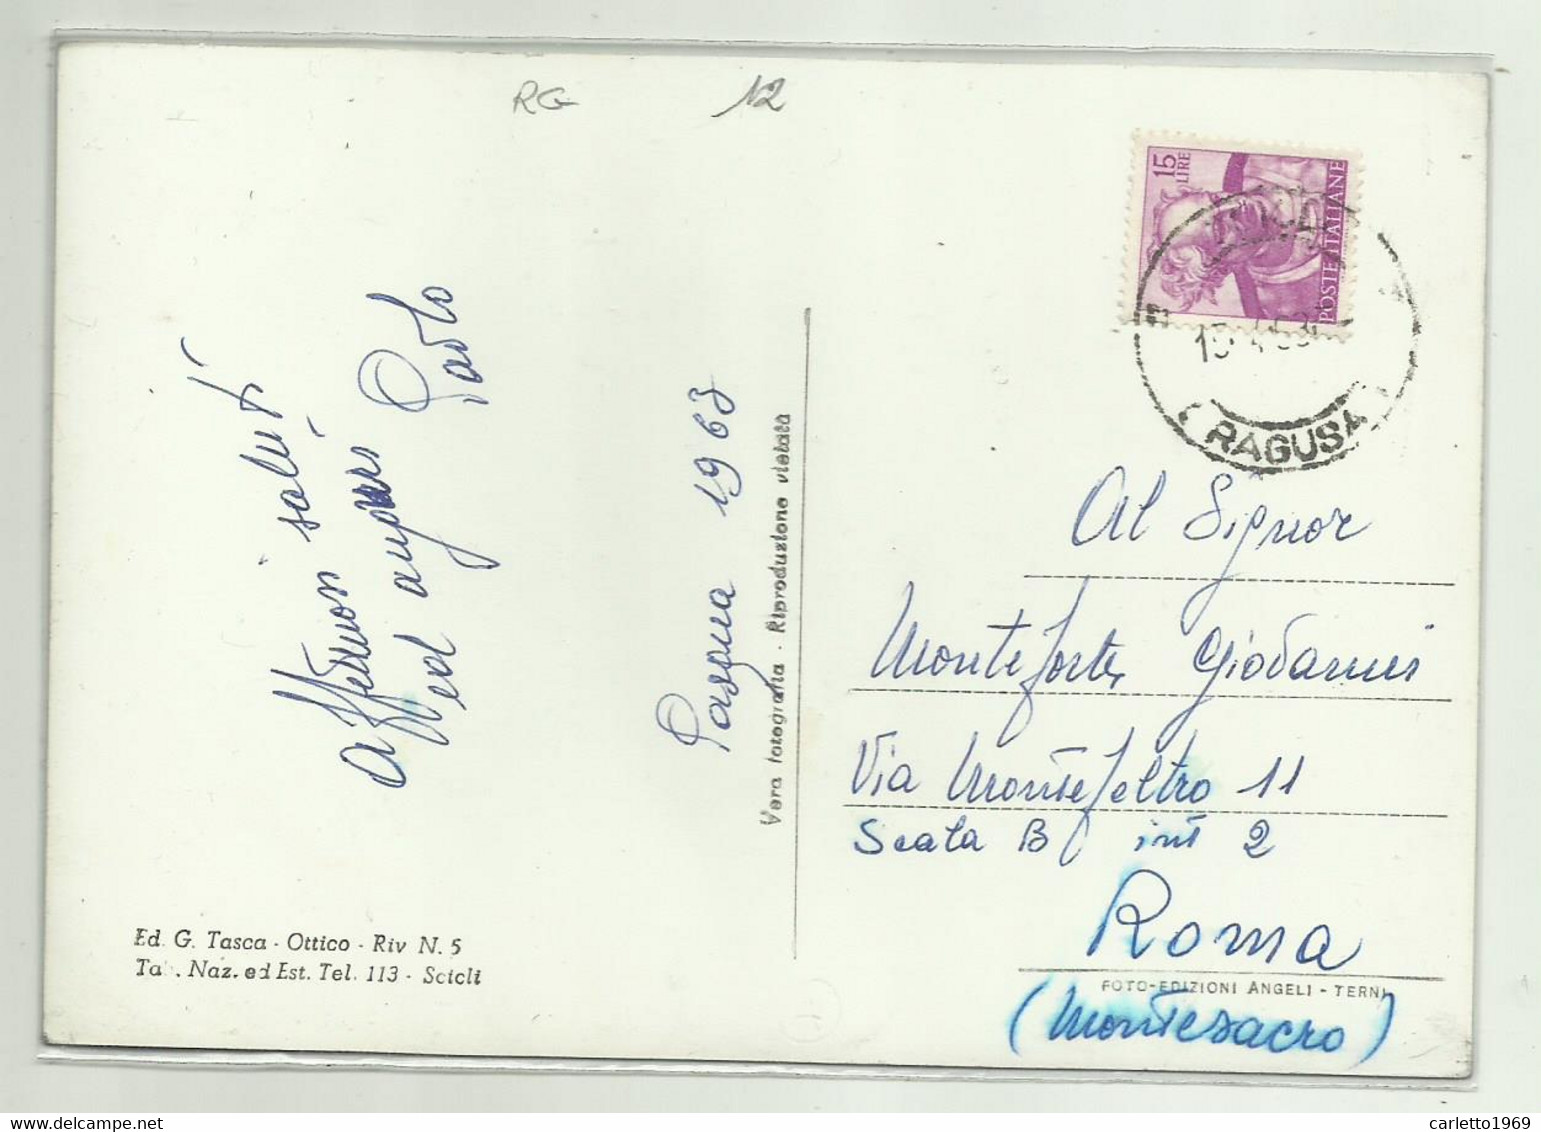 RG
12
15 LIRE
POSTE ITALIANE
RAGUSA
Affettuosi saluti
ed auguri Paolo
Pasqua 1963
Vera fotografia - Riproduzione vietata
Al Signor
Monteforte Giovanni
Via Montefeltro 11
Scala B int 2
Roma
(Montesacro)
FOTO-EDIZIONI ANGELI - TERNI
Ed. G. Tasca - Ottico - Riv N. 5
Tab. Naz. ed Est. Tel. 113 - Scicli
carletto1969